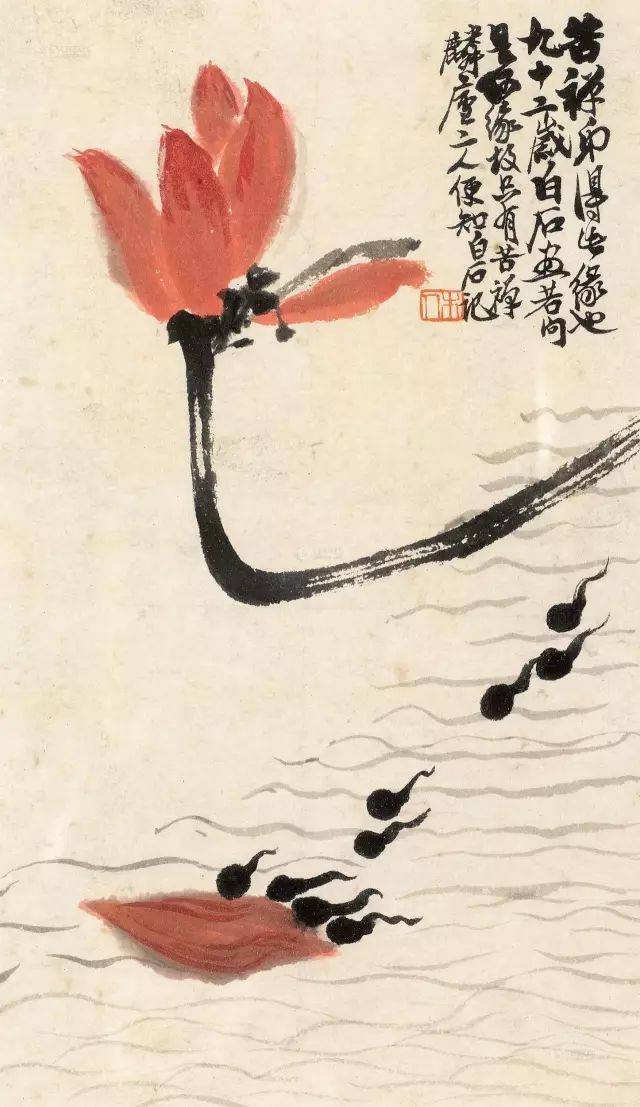 苦禪弟得此緣也
九十二歲白石畫若问
是何緣故只有苦禪
麟廬二人便知白石記
木人